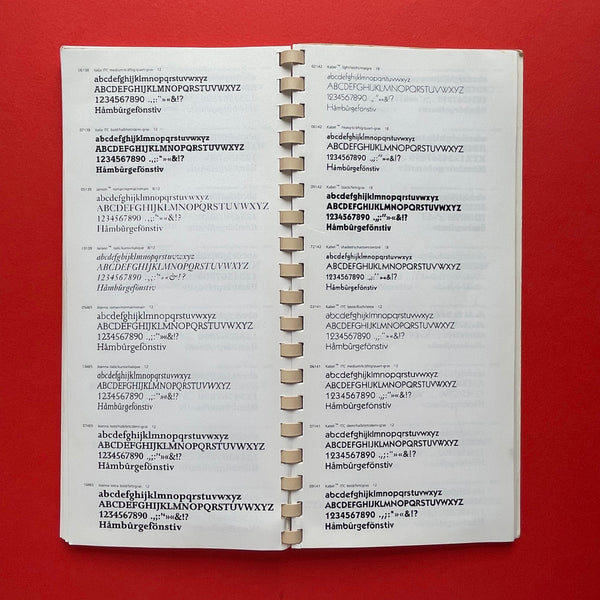 06139 Italia ITC medium/kräftig/quart-gras 12
abcdefghijklmnopqrstuvwxyz
ABCDEFGHIJKLMNOPQRSTUVWXYZ
1234567890 .,;:"»«&!?
Håmbûrgefönstiv
07139 Italia ITC bold/halbfett/demi-gras 12
abcdefghijklmnopqrstuvwxyz
ABCDEFGHIJKLMNOPQRSTUVWXYZ
1234567890 .,;:"»«&!?
Håmbûrgefönstiv
05139 Janson roman/normal/romain 8/12
abcdefghijklmnopqrstuvwxyz
ABCDEFGHIJKLMNOPQRSTUVWXYZ
1234567890 .,;:"»«&!?
Håmbûrgefönstiv
13139 Janson italic/kursiv/italique 8/12
abcdefghijklmnopqrstuvwxyz
ABCDEFGHIJKLMNOPQRSTUVWXYZ
1234567890 .,;:"»«&!?
Håmbûrgefönstiv
Joanna roman/normal/romain 12
abcdefghijklmnopqrstuvwxyz
ABCDEFGHIJKLMNOPQRSTUVWXYZ
1234567890 .,;:"»«&!?
Håmbûrgefönstiv
Joanna italic/kursiv/italique 12
abcdefghijklmnopqrstuvwxyz
ABCDEFGHIJKLMNOPQRSTUVWXYZ
1234567890 .,;:"»«&!?
Håmbûrgefönstiv
Joanna bold/halbfett/demi-gras 12
abcdefghijklmnopqrstuvwxyz
ABCDEFGHIJKLMNOPQRSTUVWXYZ
1234567890 .,;:"»«&!?
Håmbûrgefönstiv
Joanna extra bold/fett/gras 12
abcdefghijklmnopqrstuvwxyz
ABCDEFGHIJKLMNOPQRSTUVWXYZ
1234567890 .,;:"»«&!?
Håmbûrgefönstiv
02142 Kabel™ light/leicht/maigre 18
abcdefghijklmnopqrstuvwxyz
ABCDEFGHIJKLMNOPQRSTUVWXYZ
1234567890 .,;:"»«&!?
Håmbûrgefönstiv
06142 Kabel™ heavy/kräftig/quart-gras 18
abcdefghijklmnopqrstuvwxyz
ABCDEFGHIJKLMNOPQRSTUVWXYZ
1234567890 .,;:"»«&!?
Håmbûrgefönstiv
09142 Kabel™ black/fett/gras 18
abcdefghijklmnopqrstuvwxyz
ABCDEFGHIJKLMNOPQRSTUVWXYZ
1234567890 .,;:"»«&!?
Håmbûrgefönstiv
72142 Kabel™ 18
abcdefghijklmnopqrstuvwxyz
ABCDEFGHIJKLMNOPQRSTUVWXYZ
1234567890 .,;:"»«&!?
Håmbûrgefönstiv
03141 Kabel™ ITC book/Buch/texte 12
abcdefghijklmnopqrstuvwxyz
ABCDEFGHIJKLMNOPQRSTUVWXYZ
1234567890 .,;:"»«&!?
Håmbûrgefönstiv
06141 Kabel™ ITC medium/kräftig/quart-gras 12
abcdefghijklmnopqrstuvwxyz
ABCDEFGHIJKLMNOPQRSTUVWXYZ
1234567890 .,;:"»«&!?
Håmbûrgefönstiv
07141 Kabel™ ITC demi/halbfett/demi-gras 12
abcdefghijklmnopqrstuvwxyz
ABCDEFGHIJKLMNOPQRSTUVWXYZ
1234567890 .,;:"»«&!?
Håmbûrgefönstiv
09141 Kabel™ ITC bold/fett/gras 12
abcdefghijklmnopqrstuvwxyz
ABCDEFGHIJKLMNOPQRSTUVWXYZ
1234567890 .,;:"»«&!?
Håmbûrgefönstiv